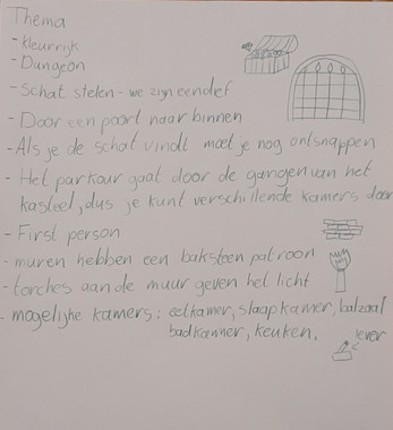 Thema
- kleurrijk
- Dungeon
- Schat stelen - we zijn een dief
- Door een poort naar binnen
- Als je de schat vindt moet je nog ontsnappen
- Het parkour gaat door de gangen van het
kasteel, dus je kunt verschillende kamers door
- First person
- muren hebben een baksteen patroon
- torches aan de muur geven het licht
- mogelijke kamers: eetkamer, slaapkamer, balzaal
badkamer, keuken.
lever